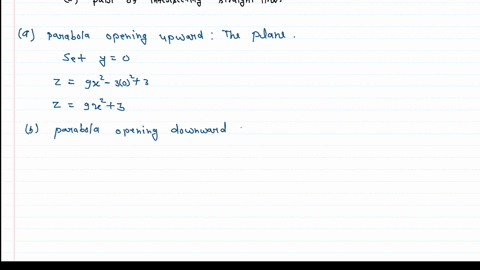 (c) pair of intersecting straight lines
(a) parabola opening upward : The plane.
Set y = 0
z = 9x² - 3(0)² + 3
z = 9x² + 3
(b) parabola opening downward